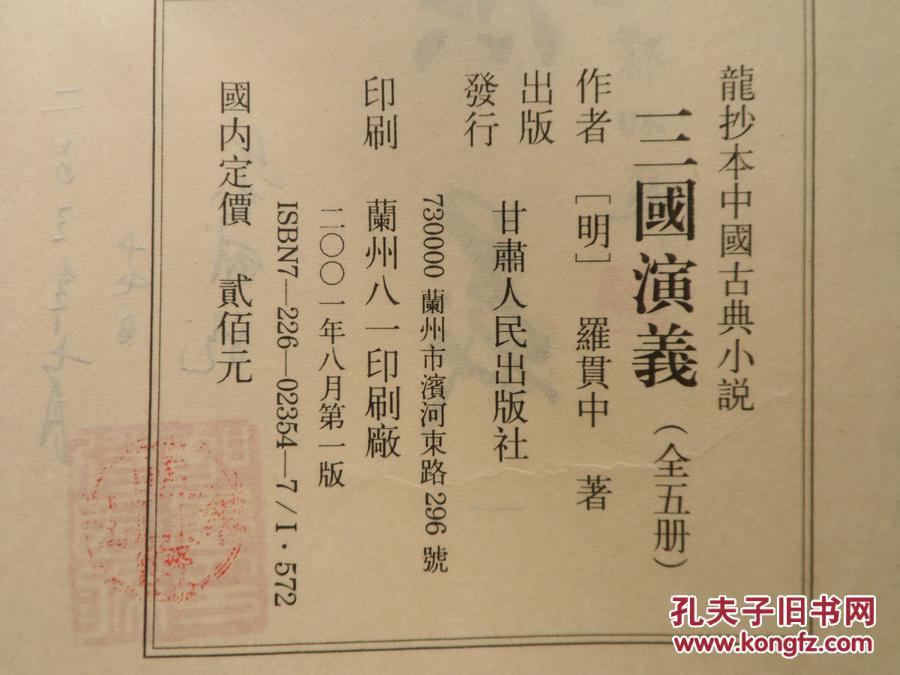 龍抄本中國古典小説
三國演義（全五册）
作者 ［明］ 羅貫中 著
出版
發行 甘肅人民出版社
730000 蘭州市濱河東路296號
印刷 蘭州八一印刷廠
二〇〇一年八月第一版
ISBN7—226—02354—7/I·572
國内定價 貳佰元
孔夫子旧书网
www.kongfz.com